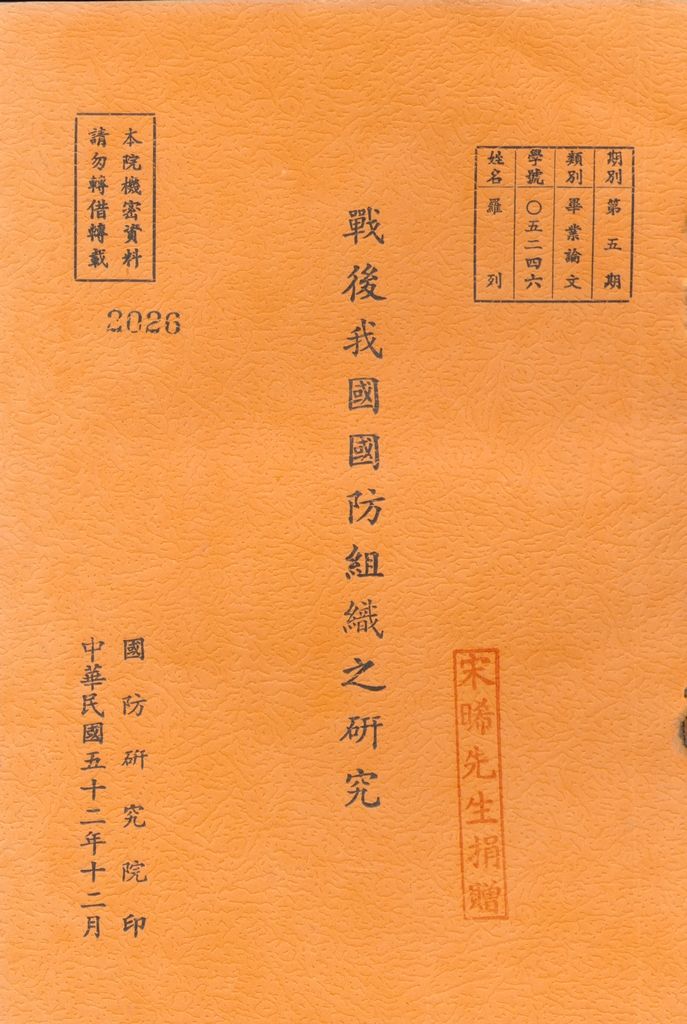 期別 第五期
類別 畢業論文
學號 〇五二四六
姓名 羅列
戰後我國國防組織之研究
宋晞先生捐贈
本院機密資料
請勿轉借轉載
2026
國防研究院印
中華民國五十二年十二月